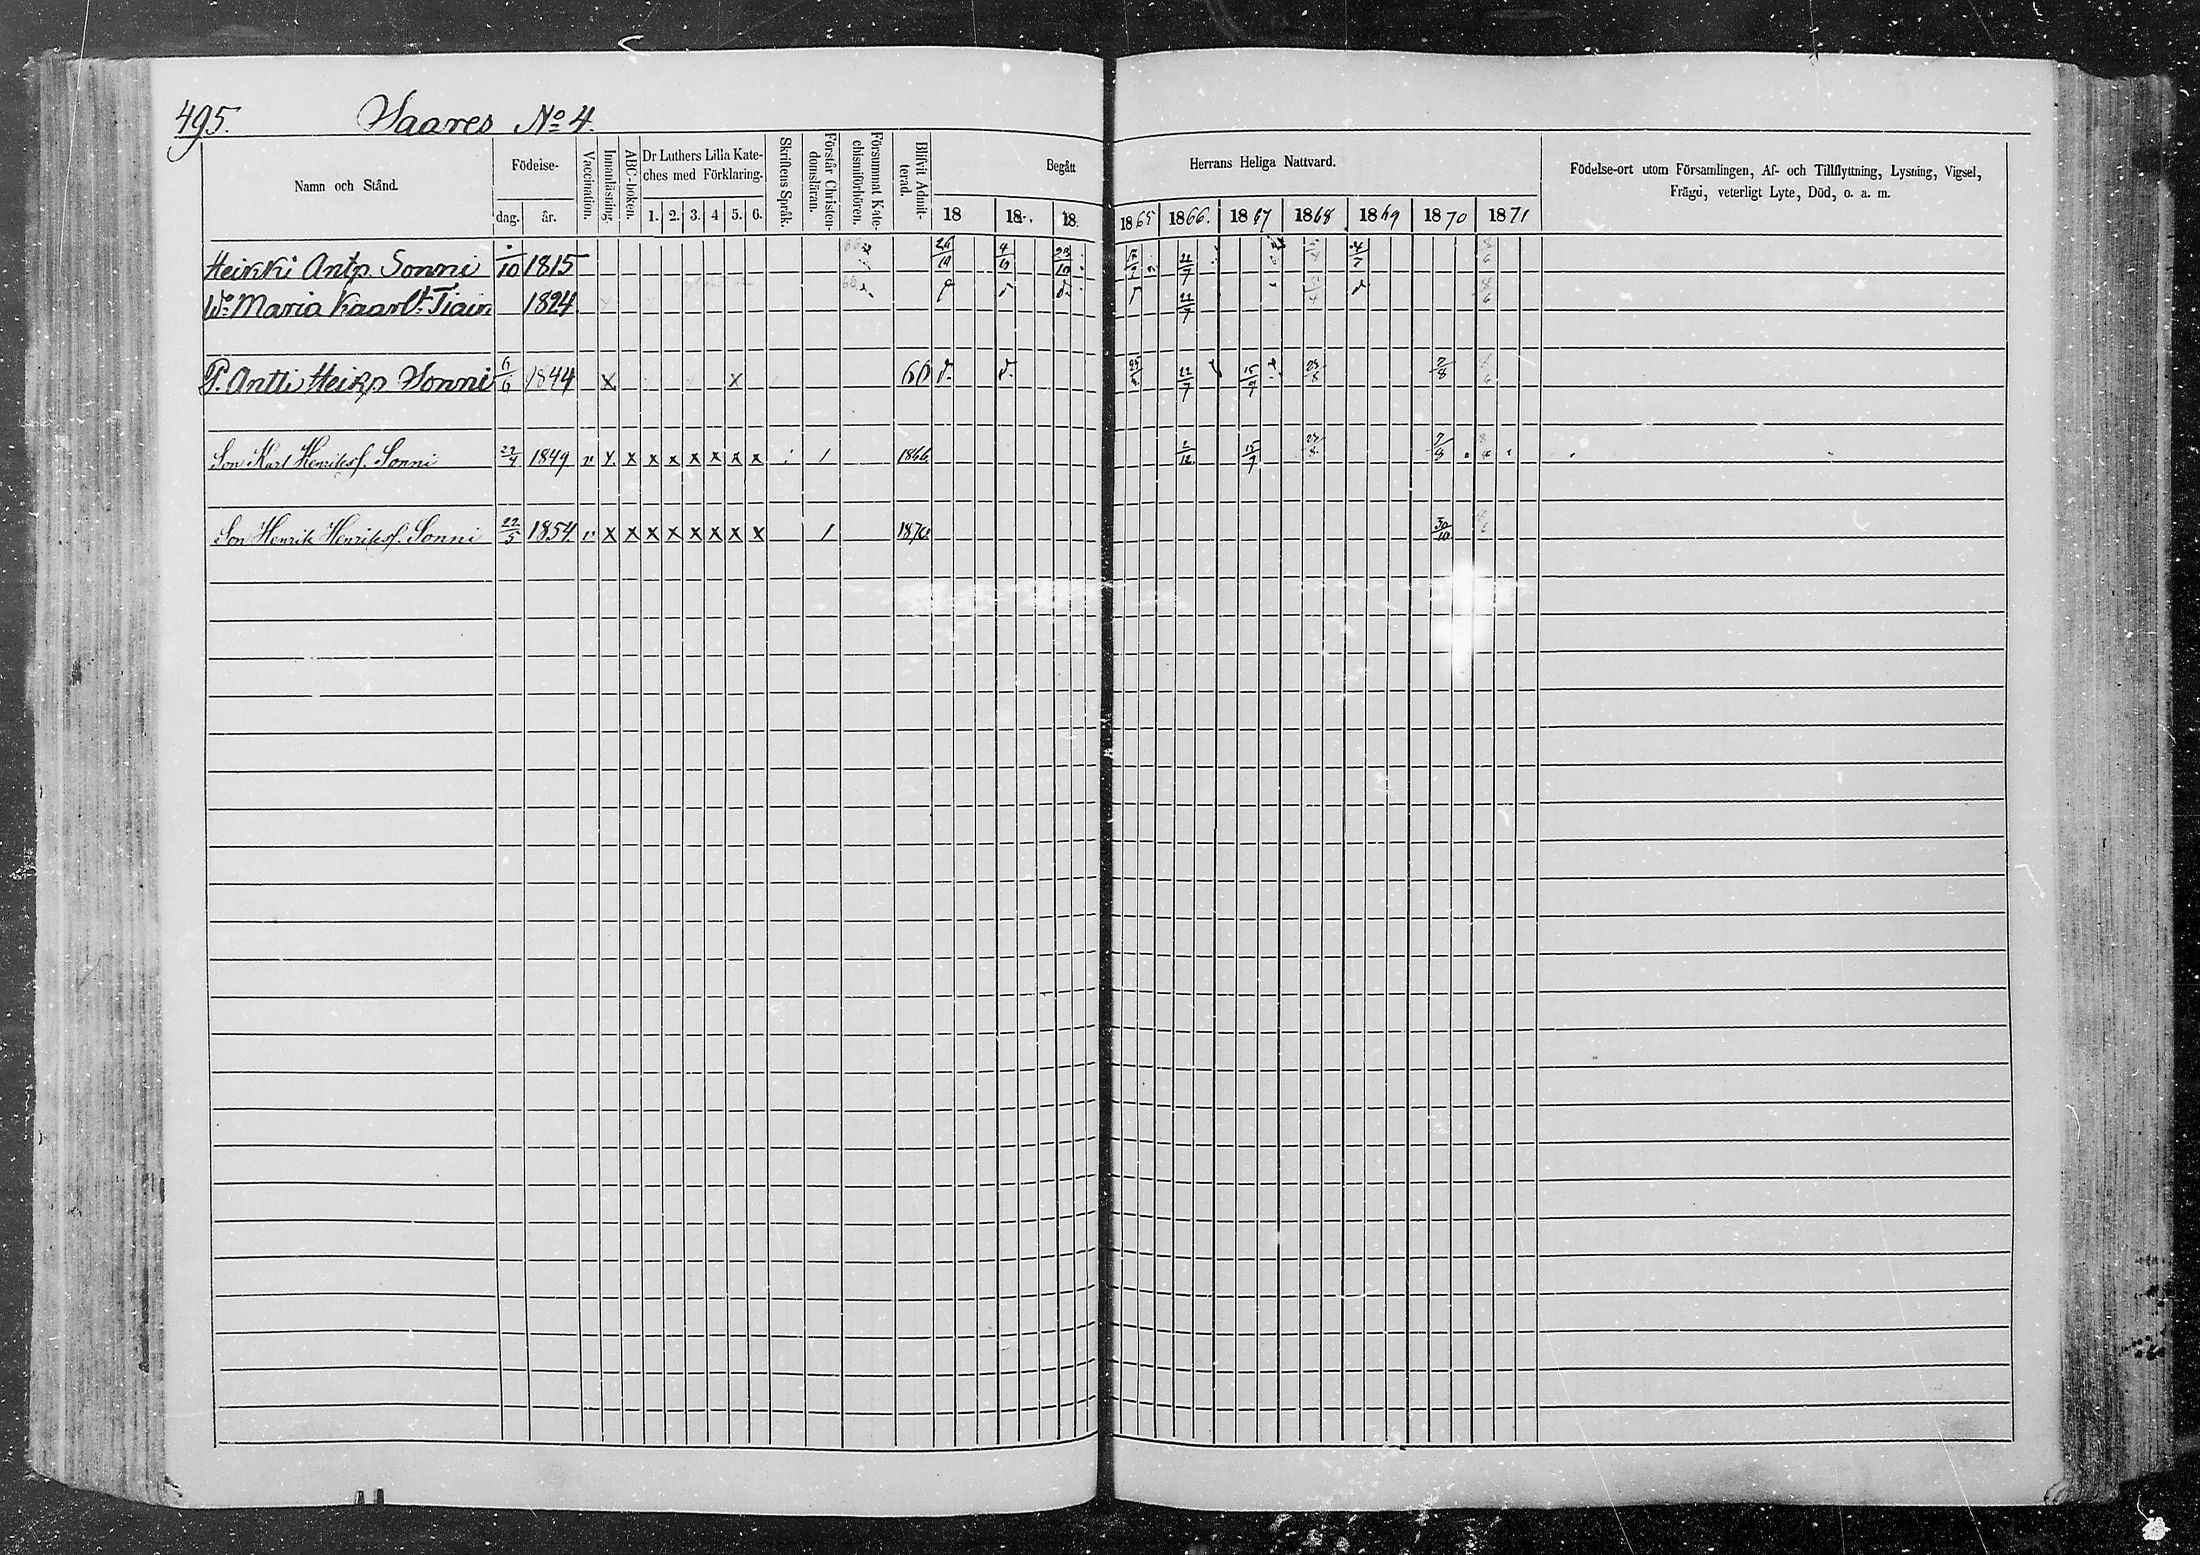 495. Saares No 4.
Namn och Stånd.
Födelse-
dag. år.
Vaccination.
Innanläsning.
ABC-boken.
Dr Luthers Lilla Kate-
ches med Förklaring.
1. 2. 3. 4 5. 6.
Skriftens Språk.
Förstår Christen-
domsläran.
Försummat Kate-
chismiförhören.
Blifvit Admit-
terad.
Begått Herrans Heliga Nattvard.
18 18 18 1865 1866. 1867 1868 1869 1870 1871
Födelse-ort utom Församlingen, Af- och Tillflyttning, Lysning, Vigsel,
Frägd, veterligt Lyte, Död, o. a. m.
Heikki Antp Sonni /10 1815 4/7
Wo Maria Kaarlt. Tiain 1824 22/7
P. Antti Heikp Sonni 6/6 1844 x x 60 22/7 15/9 7/8
Son Karl Henrikss. Sonni 1849 v x x x x x x x x 1 1866 2/12 15/9 7/8
Son Henrik Henrikss. Sonni 22/5 1854 v x x x x x x x x 1 1870 30/10